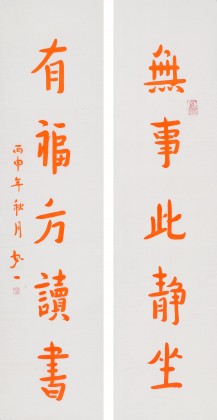 無事此静坐
有福方讀書
丙申年秋月